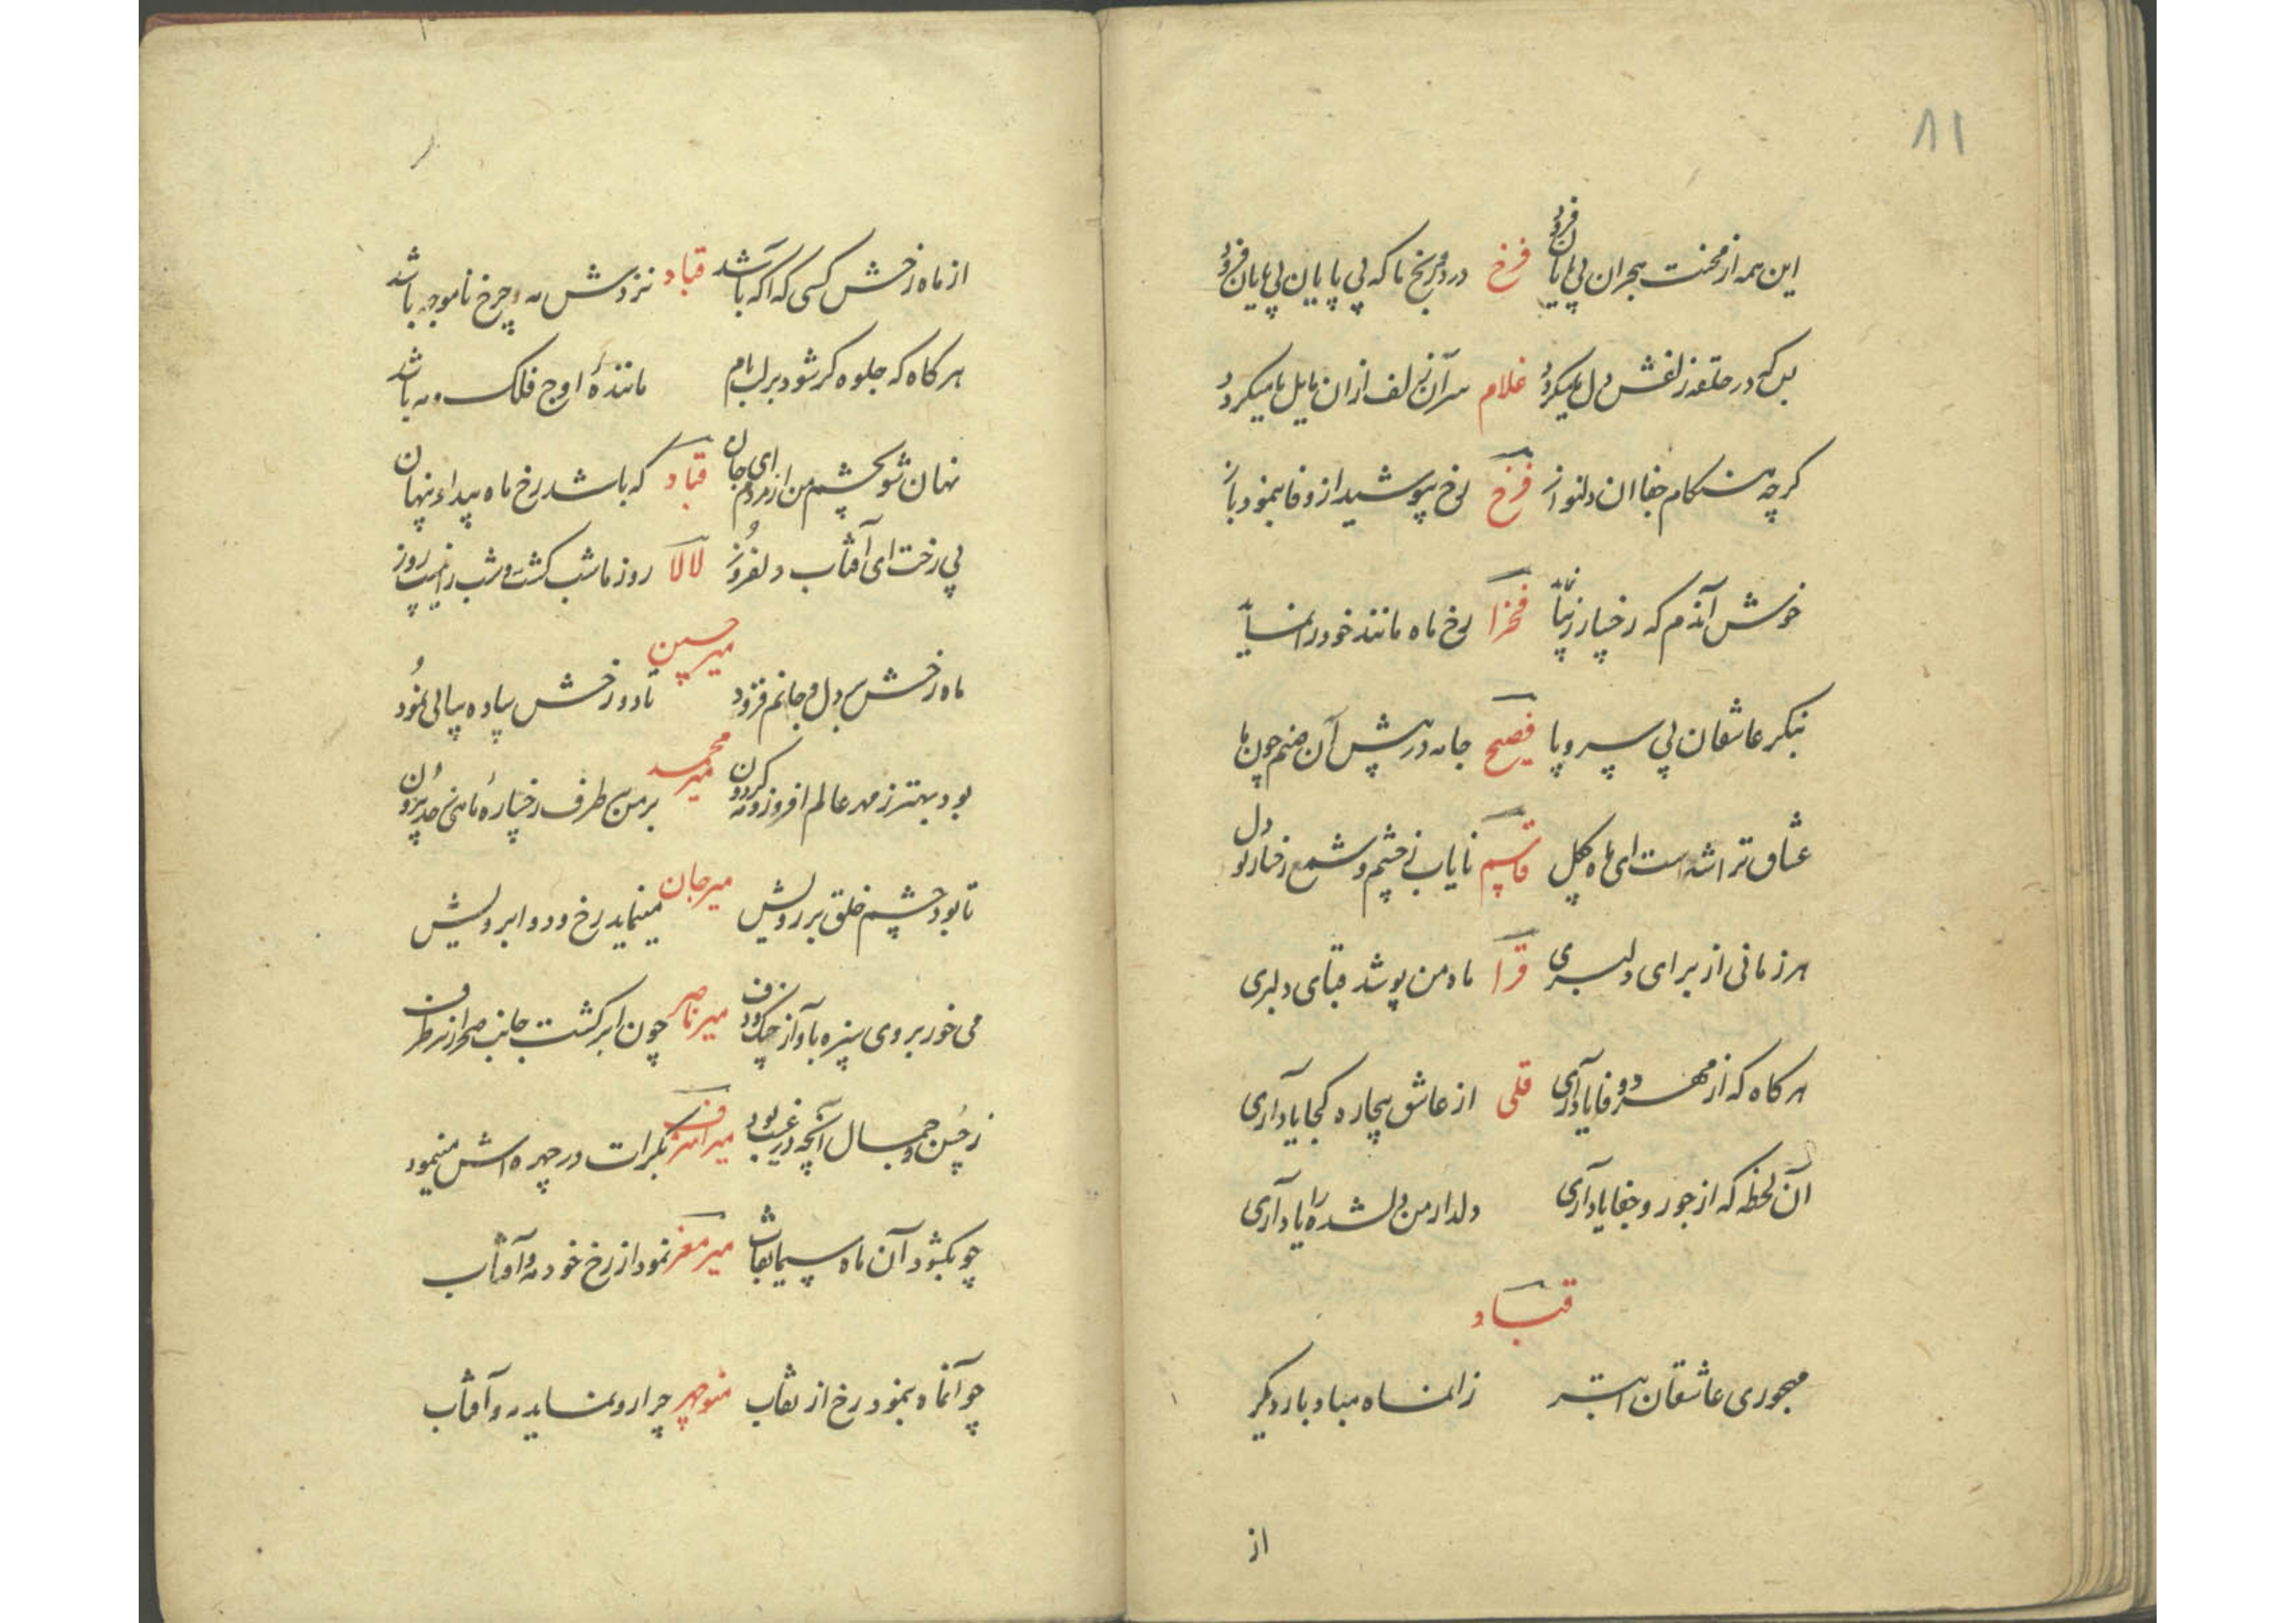 ۸۱
این همه از محنت هجران بی پایان فزود فرخ درد و رنج ما که بی پایان بی پایان فزود
بس که در حلقه زلفش دل ما میکرد غلام سر آن زلف ازان مایل ما میکرد
کرچه هنکام جفا ان دلنواز فرخ رخ بپوشید از وفا بنمود باز
خوش آندم که رخسار زیبا فخرا رخ ماه مانند خود را
بنکر عاشقان بی سر و پا فصیح جامه در پیش آن صنم چون ما
عشاق ترا شده است ای ماه چکل قاسم نایاب ز چشم و شمع رخسار تو دل
هر زمانی از برای دلبری قرا ماه من پوشد قبای دلبری
هر کاه که از مهر و وفا یاد آری قلی از عاشق بیچاره کجا یاد آری
آن لحظه که از جور و جفا یاد آری دلدار من دلشده را یاد آری
قباد
مهجوری عاشقان ابتر زالماه مباد بار دیکر
از
از ماه رخش کسی که آکه باشد قباد نزدش مه و چرخ نا موجه باشد
هر کاه که جلوه کر شود بر لب بام ماننده اوج فلک و مه باشد
نهان شو بچشم من از مردم ای جان قباد که باشد رخ ماه پیدا و پنهان
بی رخت ای آفتاب دلفروز لالا روز ما شب کشت و شب را نیست روز
ماه رخش بر دل و جانم فزود میر حسین تا دو رخش ساده مثالی نمود
بود بهتر ز مهر عالم افروز و مه کردون میر محمد بر من طرف رخساره ماهی ز حد بیرون
تا بود چشم خلق بر رویش میر جان مینماید رخ و دو ابرویش
می خور بروی سبزه بآواز چنک و دف میر ناصر چون ابر کشت جانب صحرا ز هر طرف
ز حسن و جمال آنچه در غیب بود میر بکرات در چهره اش مینمود
چو بکشود آن ماه سیما نقاب میر معز نمود از رخ خود مه و آفتاب
چو آنماه بنمود رخ از نقاب منوچهر چرا رو نماید مه و آفتاب